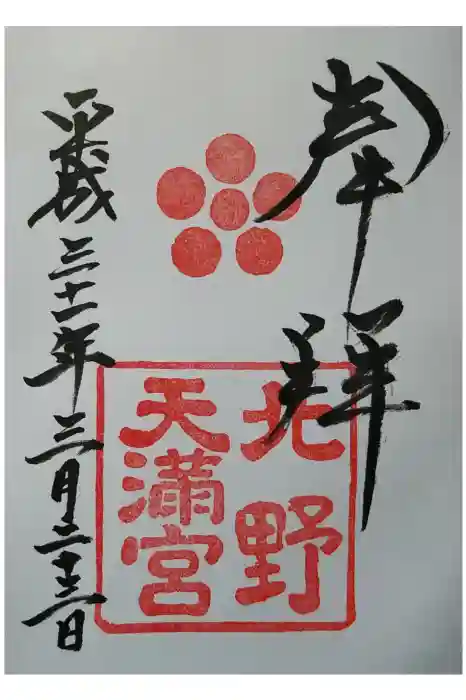 奉拝
北野
天満宮
平成三十一年三月二十三日